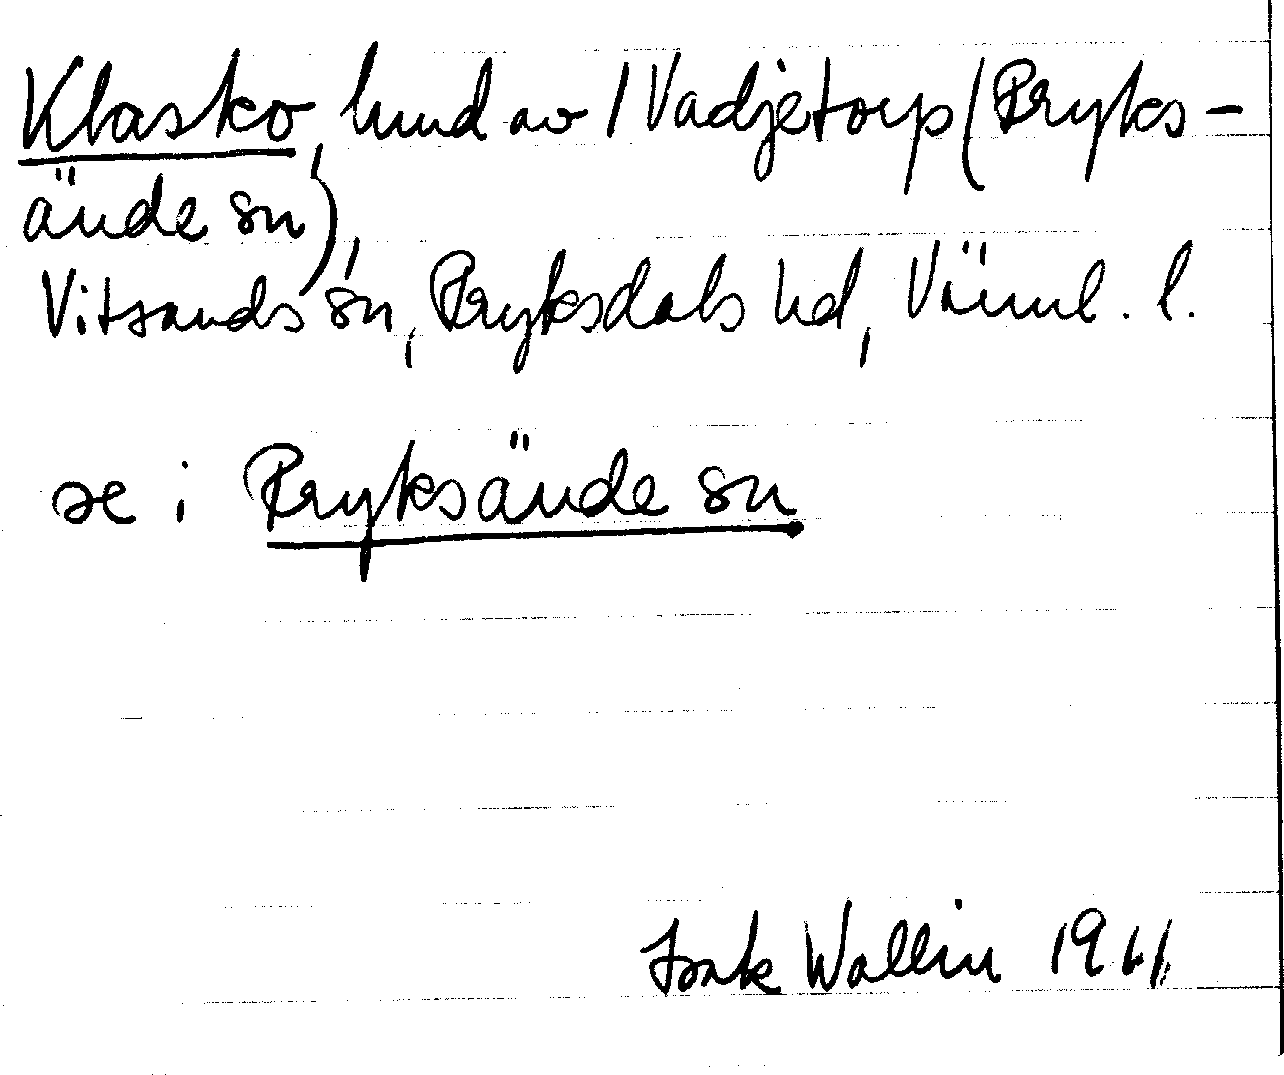 Klasko, hund av / Vadjetorp (Fryks-
ände sn),
Vitsands sn, Fryksdals hd, Värml. l.
se i Fryksände sn
Wallin 1961